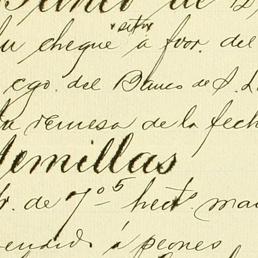 Banco de
su cheque s/n a favr. del
cgo. del Banco de S. L
la remesa de la fech
Semillas
r. de 7 0 5 hects. mai
vendido á peones